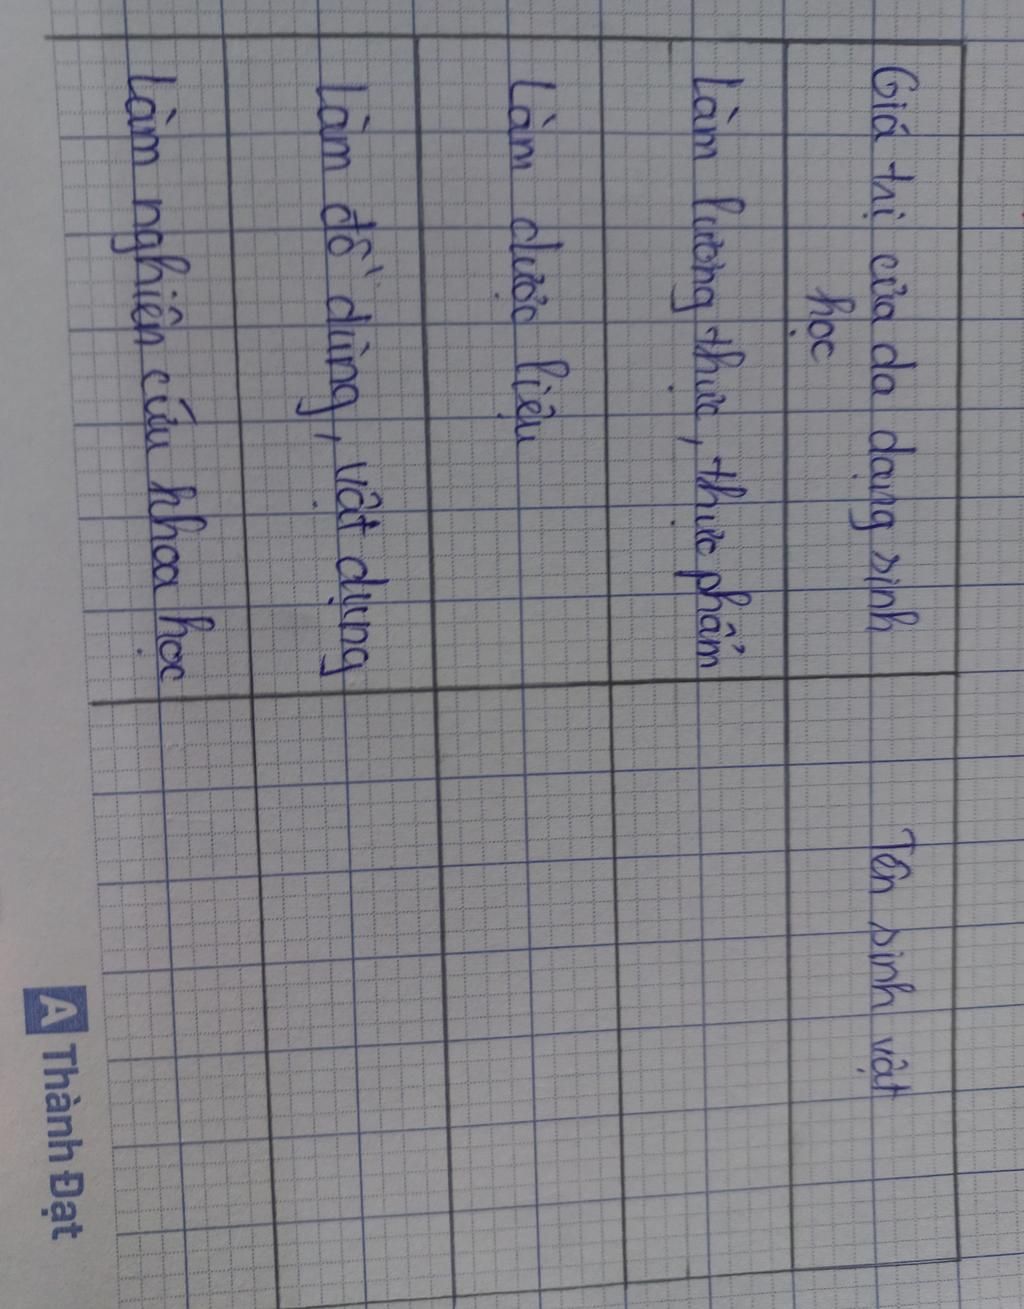 Giá trị của đa dạng sinh
học
Tên sinh vật
Làm lương thực, thực phẩm
Làm dược liệu
Làm đồ dùng, vật dụng
Làm nghiên cứu khoa học
A Thành Đạt